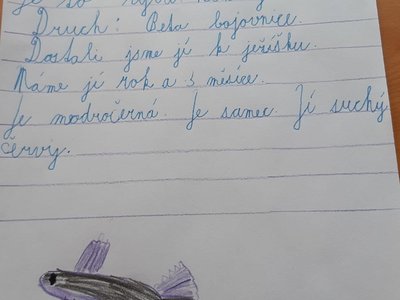 Je to
Druh: Beta bojovnice.
Dostali jsme jí k ježíšku.
Máme jí rok a 3 měsíce.
Je modročerná. Je samec. Jí suchý
červy.